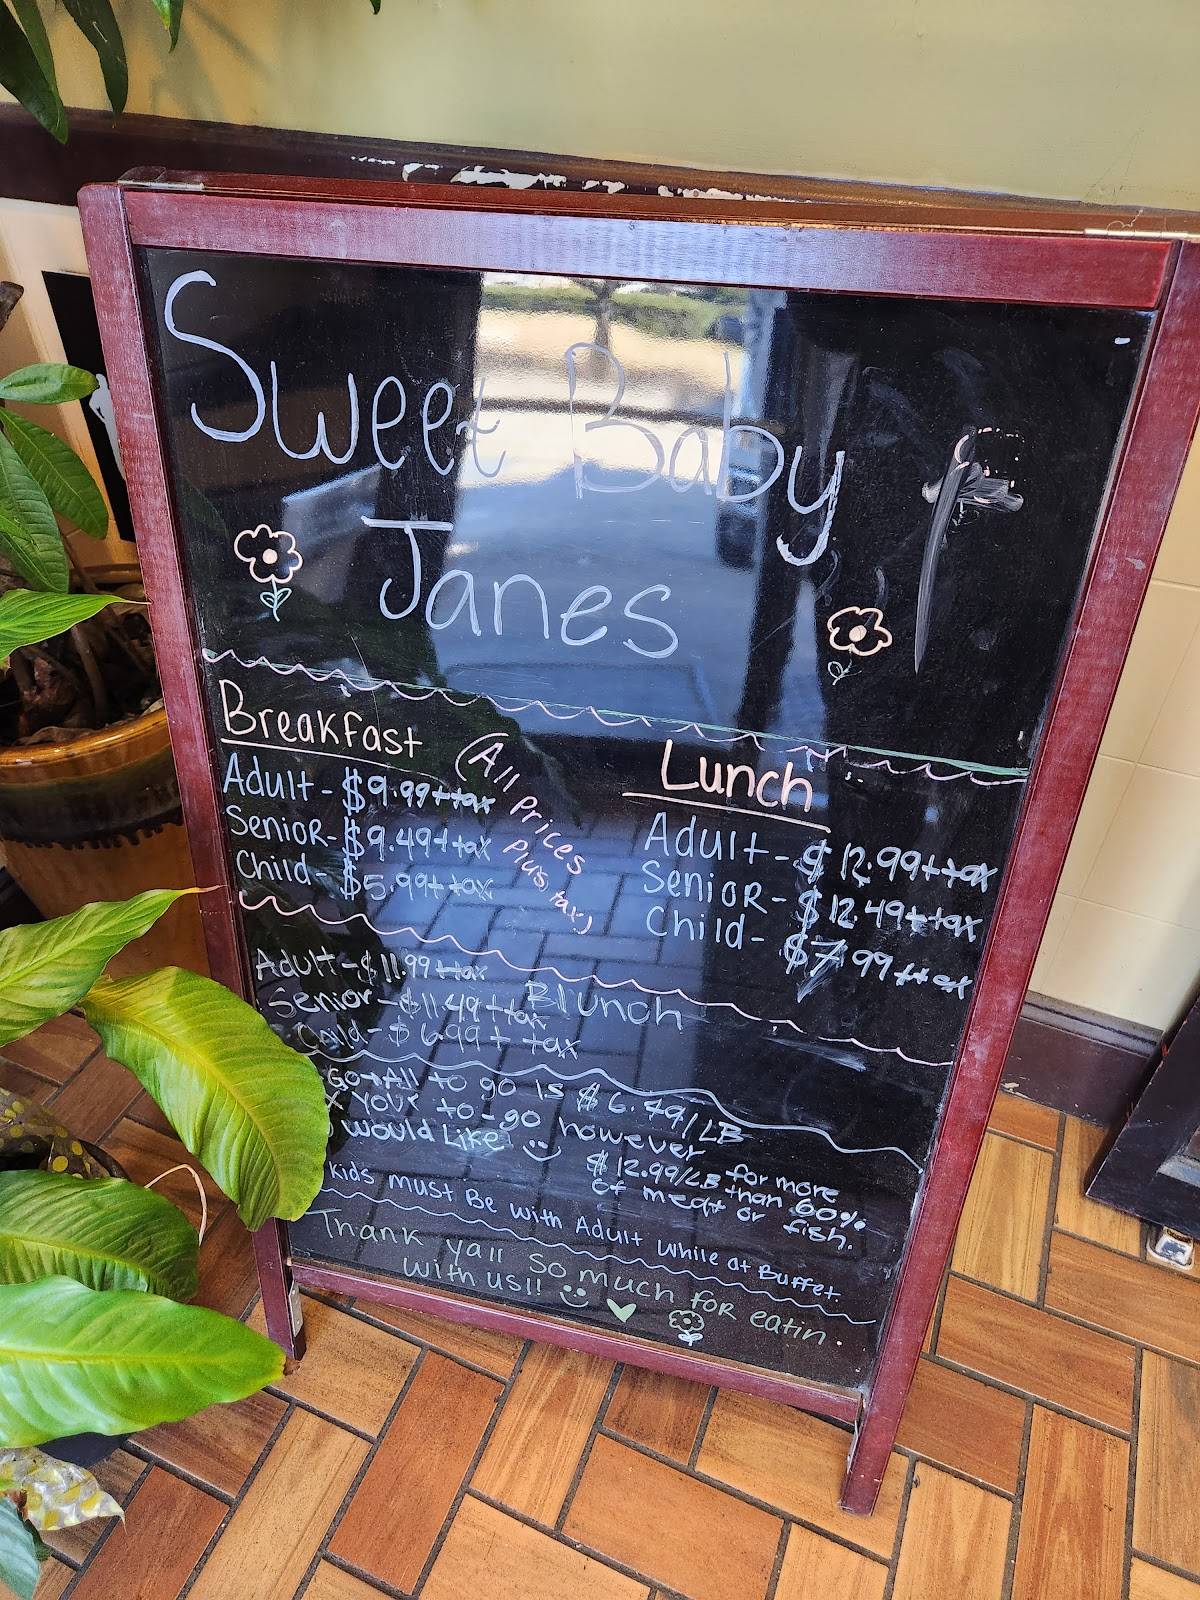 Sweet Baby
Janes
Breakfast
(All Prices
Plus tax)
Adult - $9.99 + tax
Senior - $9.49 + tax
Child - $5.99 + tax
Lunch
Adult - $12.99 + tax
Senior - $12.49 + tax
Child - $7.99 + tax
Brunch
Adult - $11.99 + tax
Senior - $11.49 + tax
Child - $6.99 + tax
Go - All to go is $6.49/LB
your to-go however
would Like
$12.99/LB for more
than 60%
of meat or fish.
Kids must Be with Adult while at Buffet.
Thank ya'll so much for eatin.
with us!!